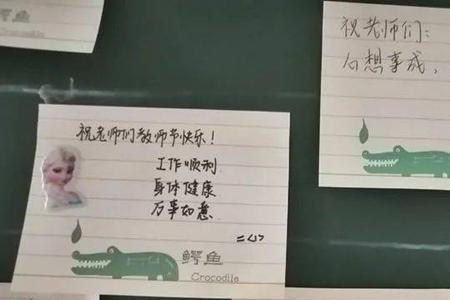 鳄鱼
Crocodile
祝老师们：
心想事成，
祝老师们教师节快乐！
工作顺利
身体健康
万事如意
鳄鱼
Crocodile